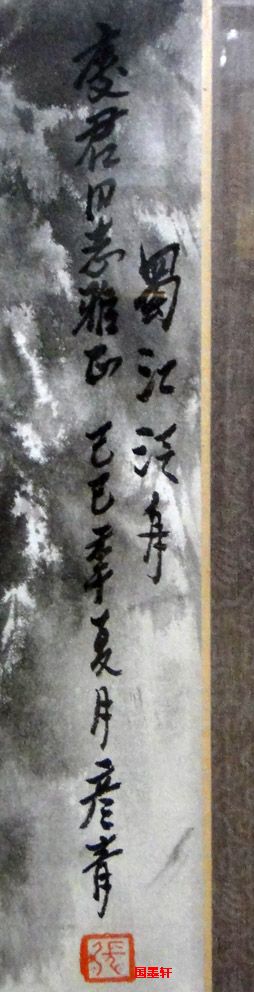 蜀江泛舟
庆君同志雅正 己巳年夏月彦青
張
国墨轩